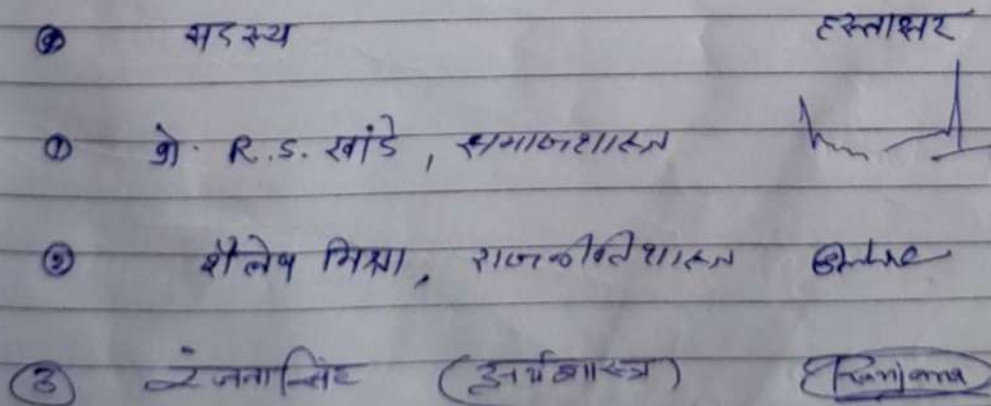 सदस्य हस्ताक्षर
① प्रो. R.S. खांडे, समाजशास्त्र
② शैलेष मिश्रा, राजनीतिशास्त्र
③ रंजना सिंह (अर्थशास्त्र) Ranjana